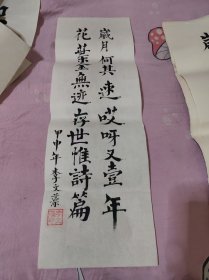 歲月何其速哎呀又壹年
花荘墨無迹存世惟詩篇
甲申年李文